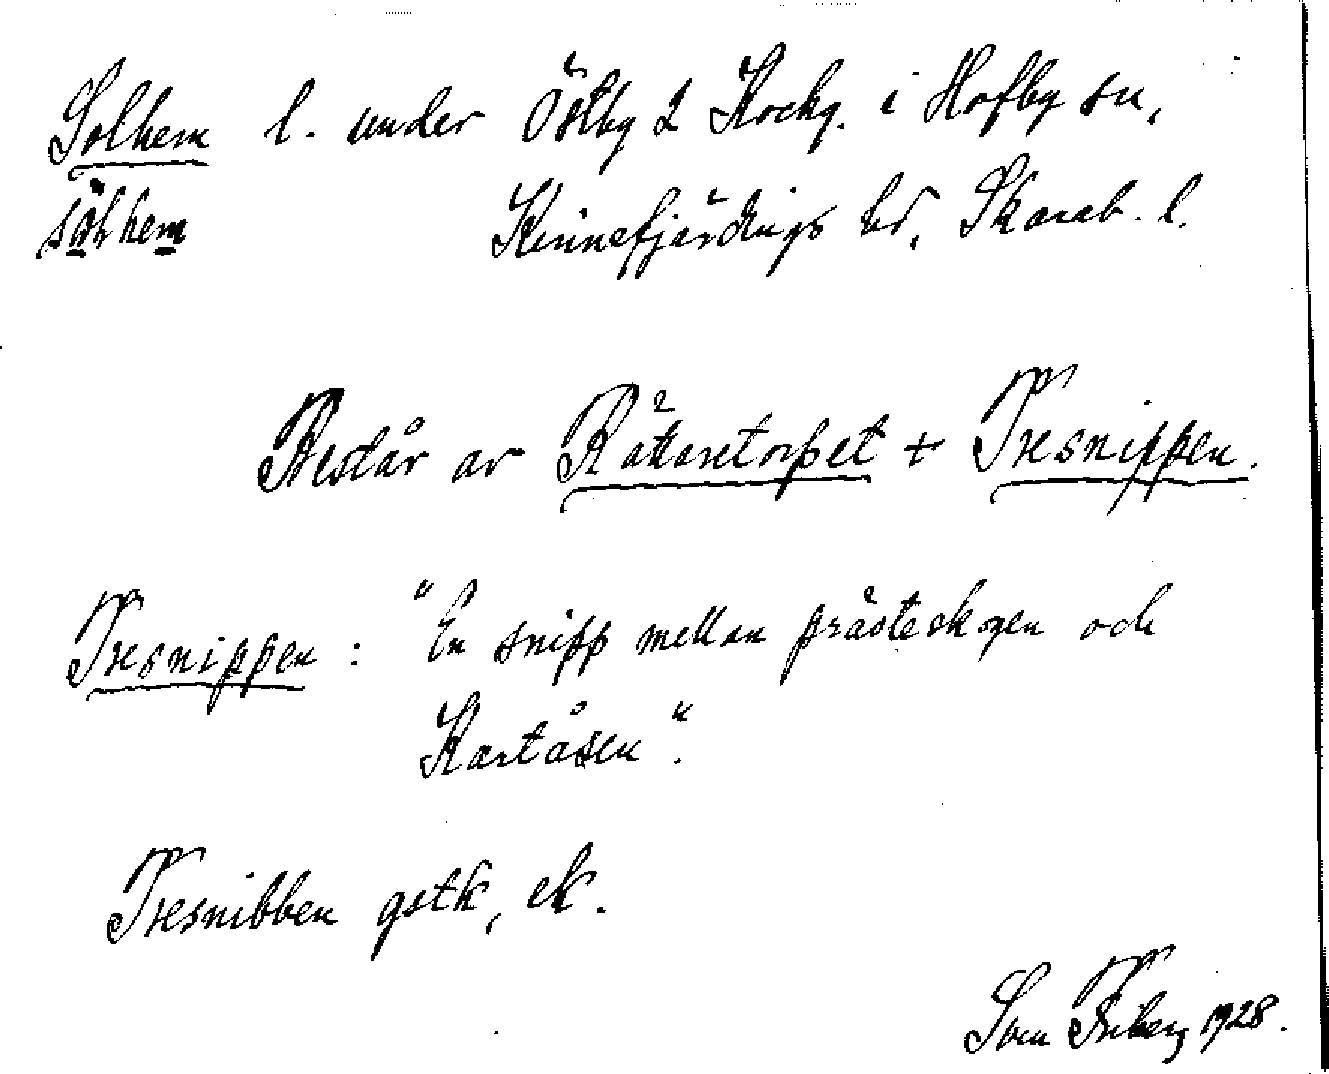 Solhem l. under Östby 2 Kockg. i Hofby sn,
sólhem Kinnefjärdings hd, Skarab. l.
Består av Rättaretorpet + Tresnippen.
Tresnippen : "En snipp mellan prästeskogen och
Kartåsen".
Tresnibben gstk, ek.
Sven Friberg 1928.